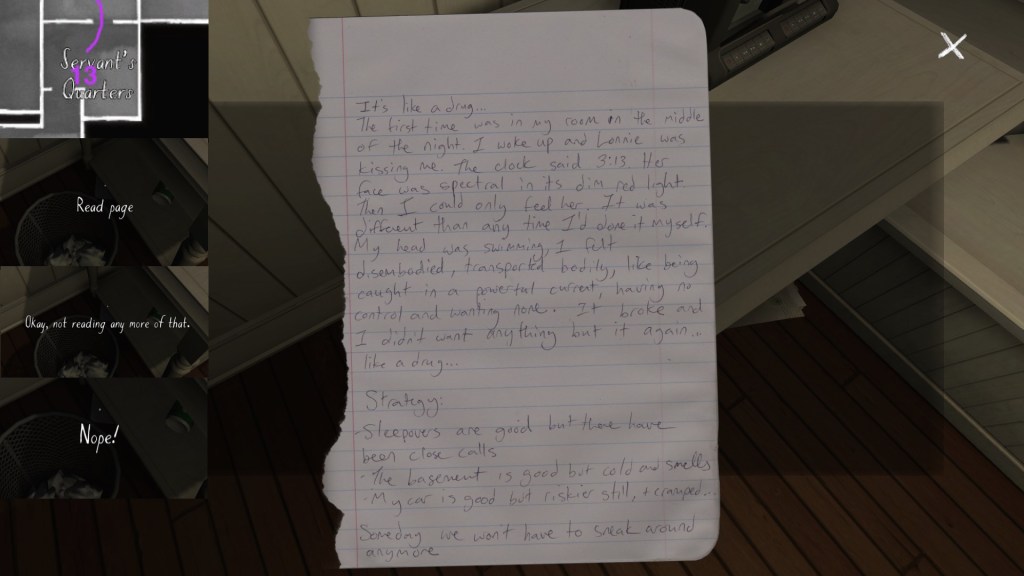 Servant's
13
Quarters
Read page
Okay, not reading any more of that.
Nope!
It's like a drug...
The first time was in my room in the middle
of the night. I woke up and Lonnie was
kissing me. The clock said 3:13. Her
face was spectral in its dim red light.
Then I could only feel her. It was
different than any time I'd done it myself.
My head was swimming, I felt
disembodied, transported bodily, like being
caught in a powerful current, having no
control and wanting none. It broke and
I didn't want anything but it again...
like a drug...
Strategy:
-Sleepovers are good but there have
been close calls
-The basement is good but cold and smells
-My car is good but riskier still, + cramped..
Someday we won't have to sneak around
anymore